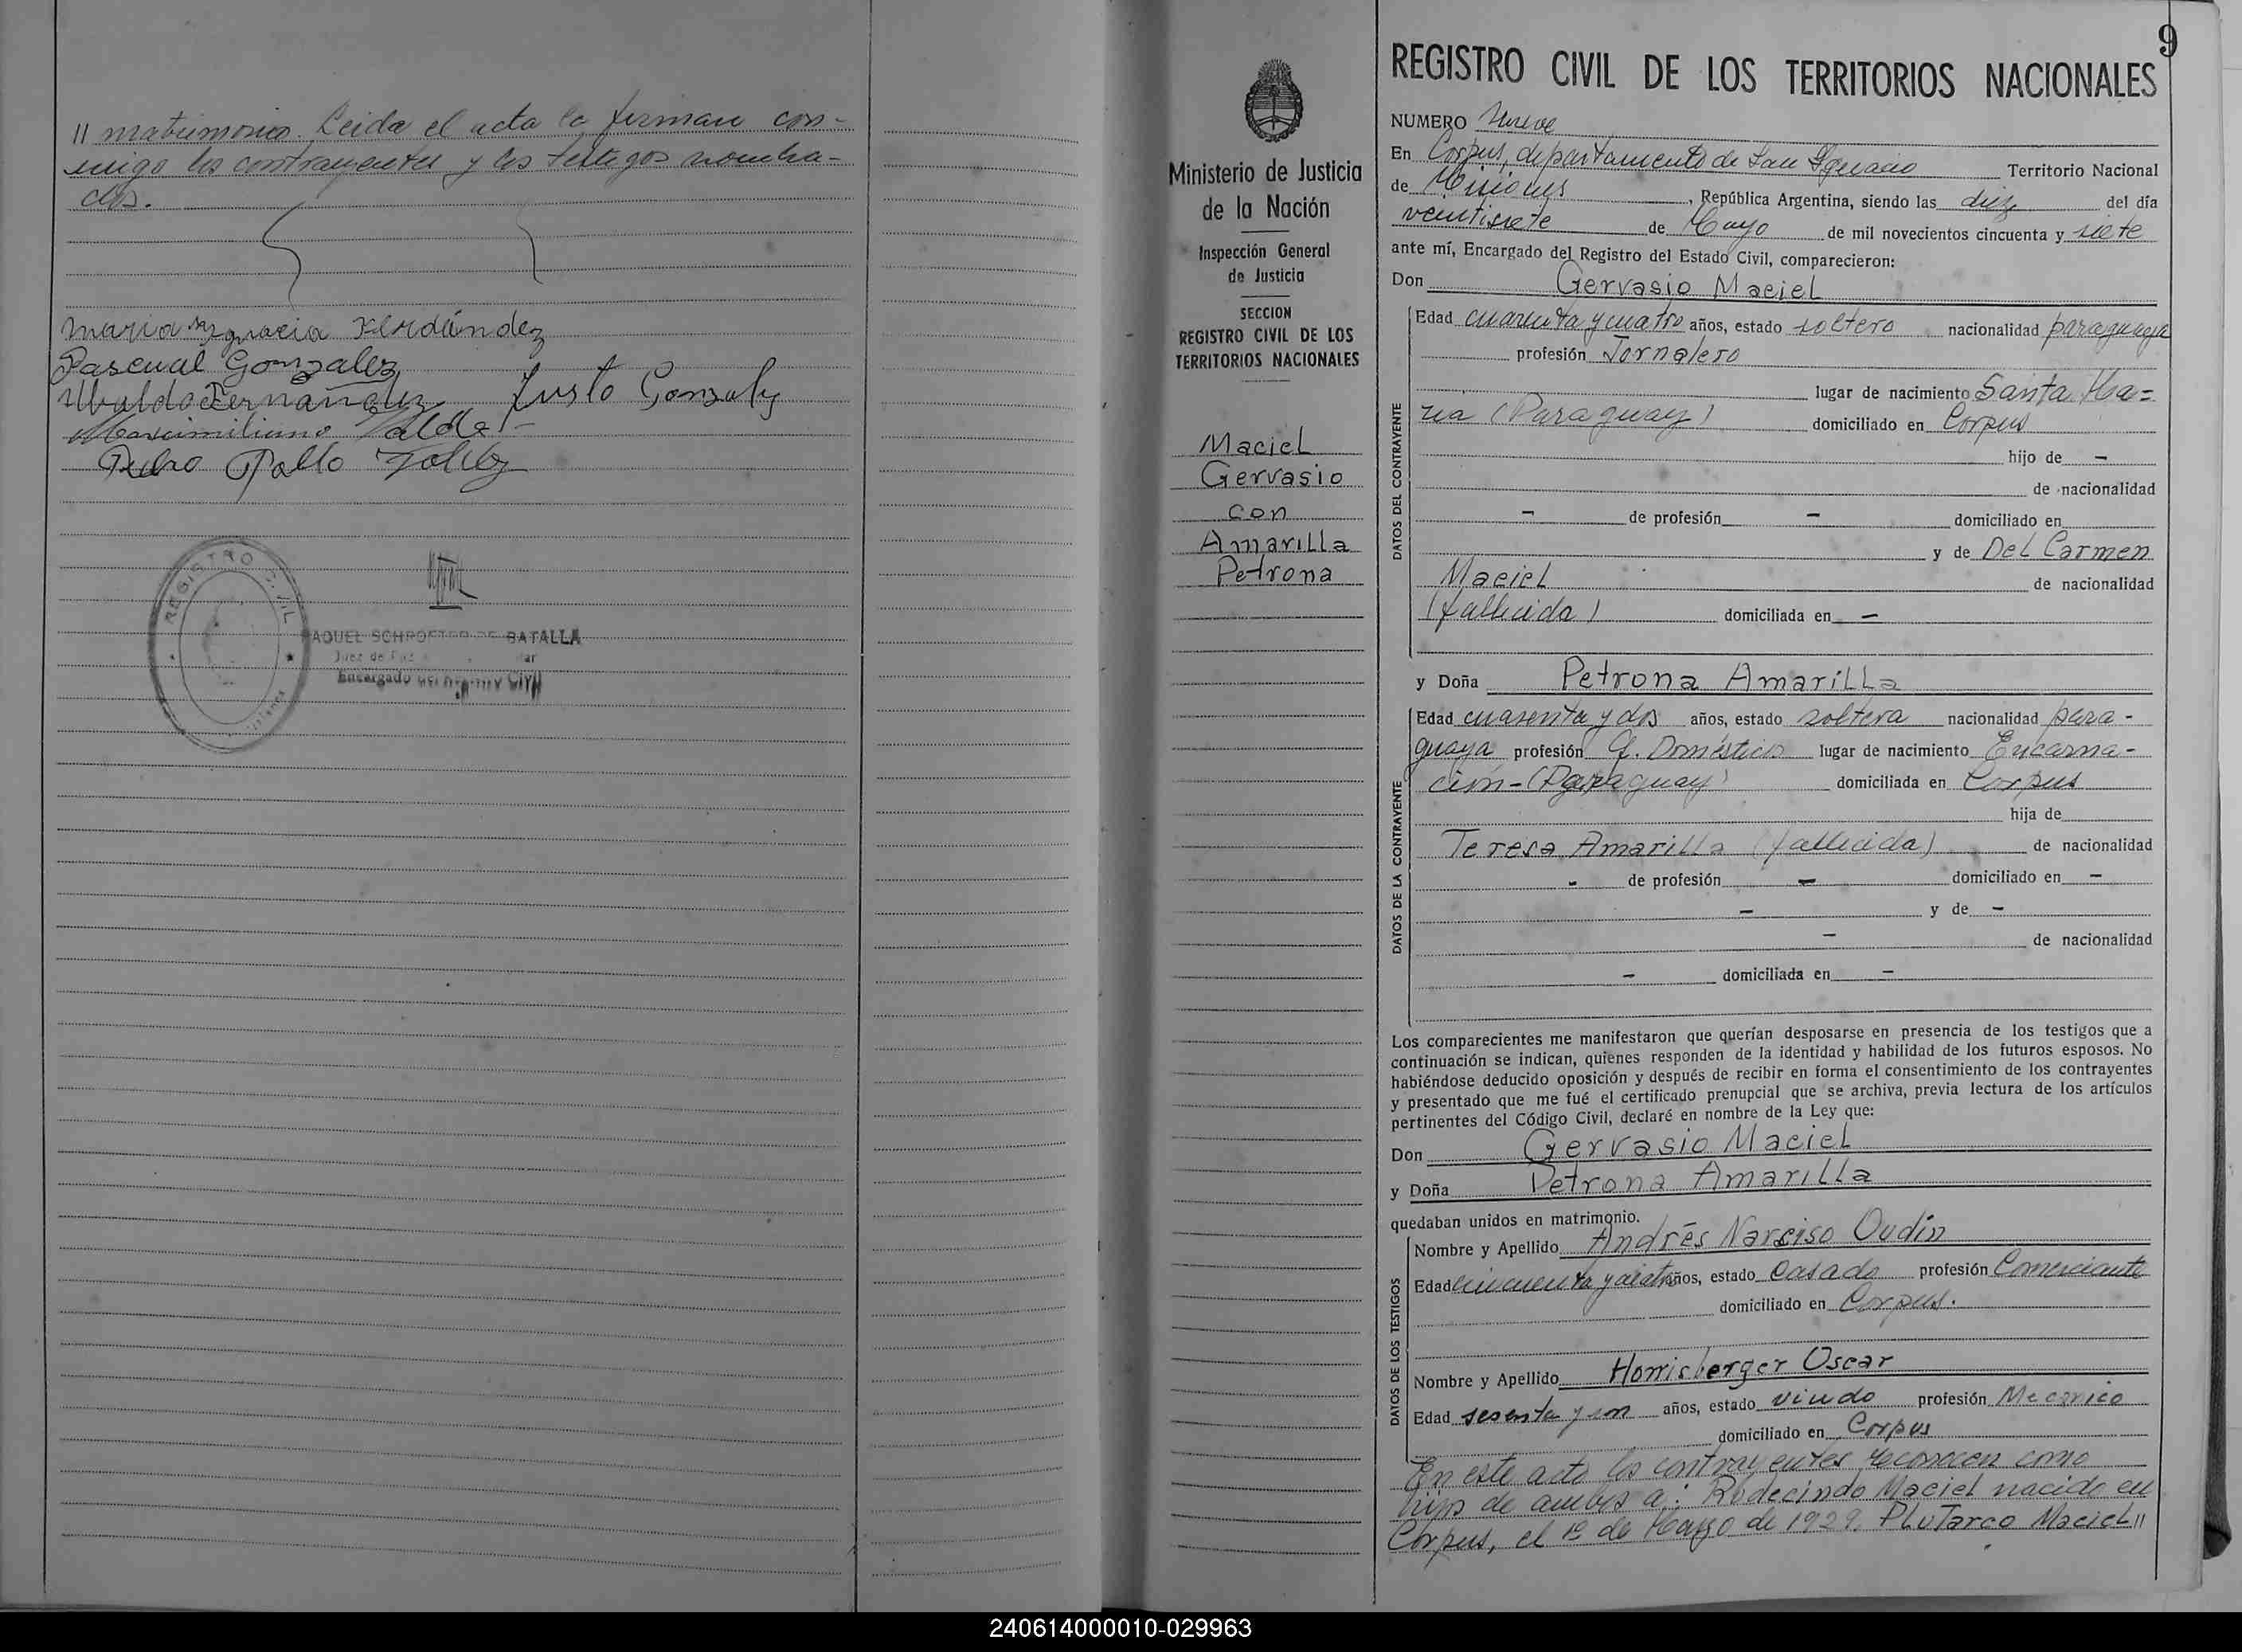 // matrimonio. Leida el acta la firman con-
migo los contrayentes y los testigos nombra-
dos.
Maria Ygnacia
Pascual Gonzalez
Ubaldo Fernández Justo Gonzalez
Maximiliano
Pedro Pablo
REGISTRO CIVIL
AQUEL SCHROETER DE BATALLA
Juez de Paz
Encargado del Registro Civil
Ministerio de Justicia
de la Nación
Inspección General
de Justicia
SECCION
REGISTRO CIVIL DE LOS
TERRITORIOS NACIONALES
Maciel
Gervasio
con
Amarilla
Petrona
9
REGISTRO CIVIL DE LOS TERRITORIOS NACIONALES
NUMERO Nueve
En Corpus, departamento de San Ignacio Territorio Nacional
de Misiones, República Argentina, siendo las diez del día
veintisiete de Mayo de mil novecientos cincuenta y siete
ante mí, Encargado del Registro del Estado Civil, comparecieron:
Don Gervasio Maciel
DATOS DEL CONTRAYENTE
Edad cuarenta y cuatro años, estado soltero nacionalidad paraguaya
profesión Jornalero
lugar de nacimiento Santa Ma=
ria (Paraguay) domiciliado en Corpus
hijo de -
de nacionalidad
- de profesión - domiciliado en
y de Del Carmen
Maciel de nacionalidad
(fallecida) domiciliada en -
y Doña Petrona Amarilla
DATOS DE LA CONTRAYENTE
Edad cuarenta y dos años, estado soltera nacionalidad para-
guaya profesión Q. Domésticos lugar de nacimiento Encarna-
ción-(Paraguay) domiciliada en Corpus
hija de
Teresa Amarilla (fallecida) de nacionalidad
- de profesión - domiciliado en -
- y de -
- de nacionalidad
- domiciliada en -
Los comparecientes me manifestaron que querían desposarse en presencia de los testigos que a
continuación se indican, quienes responden de la identidad y habilidad de los futuros esposos. No
habiéndose deducido oposición y después de recibir en forma el consentimiento de los contrayentes
y presentado que me fué el certificado prenupcial que se archiva, previa lectura de los artículos
pertinentes del Código Civil, declaré en nombre de la Ley que:
Don Gervasio Maciel
y Doña Petrona Amarilla
quedaban unidos en matrimonio.
DATOS DE LOS TESTIGOS
Nombre y Apellido Andrés Narciso Oudín
Edad cincuenta y cuatro años, estado casado profesión Comerciante
domiciliado en Corpus.
Nombre y Apellido Horrisberger Oscar
Edad sesenta y un años, estado viudo profesión Mecanico
domiciliado en Corpus
En este acto los contrayentes reconocen como
hijos de ambos a: Rudecindo Maciel nacido en
Corpus, el 1º de Marzo de 1929. Plutarco Maciel //
240614000010-029963